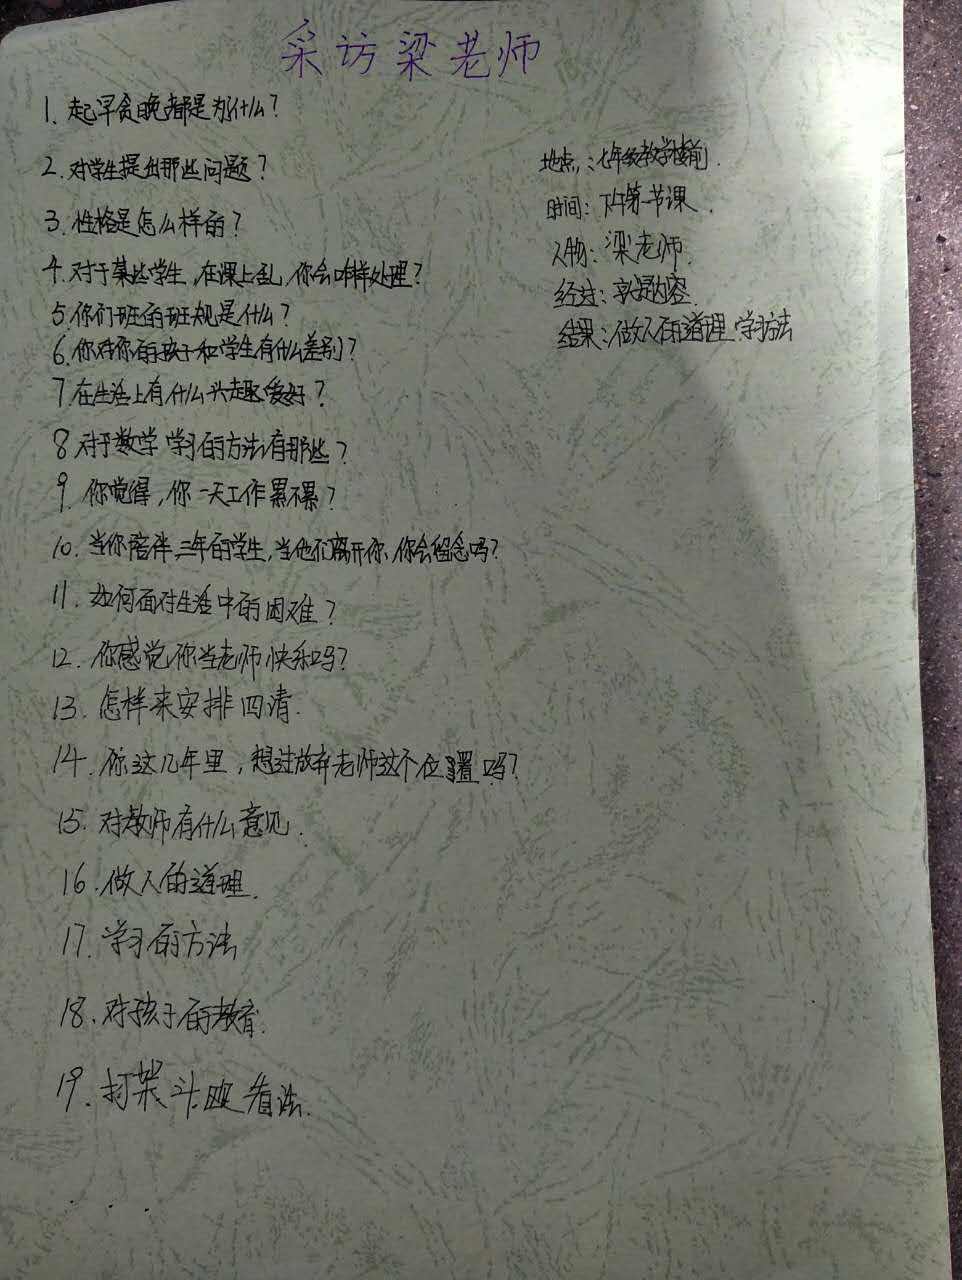 采访梁老师
1、起早贪晚都是为什么？
2.对学生提出那些问题？
3.性格是怎么样的？
4.对于某些学生，在课上乱，你会咋样处理？
5.你们班的班规是什么？
6.你对你的孩子和学生有什么差别？
7.在生活上有什么兴趣爱好？
8 对于数学学习的方法有那些？
9.你觉得，你一天工作累不累？
10.当你陪伴三年的学生，当他们离开你、你会留念吗？
11.如何面对生活中的困难？
12.你感觉你当老师快乐吗？
13.怎样来安排四清.
14.你这几年里，想过放弃老师这个位置吗？
15.对教师有什么意见.
16.做人的道理.
17.学习的方法
18、对孩子的教育.
19、打架斗殴看法.
地点：七年级教学楼前.
时间：下午第一节课.
人物：梁老师.
经过：就是内容.
结果：做人的道理.学习方法